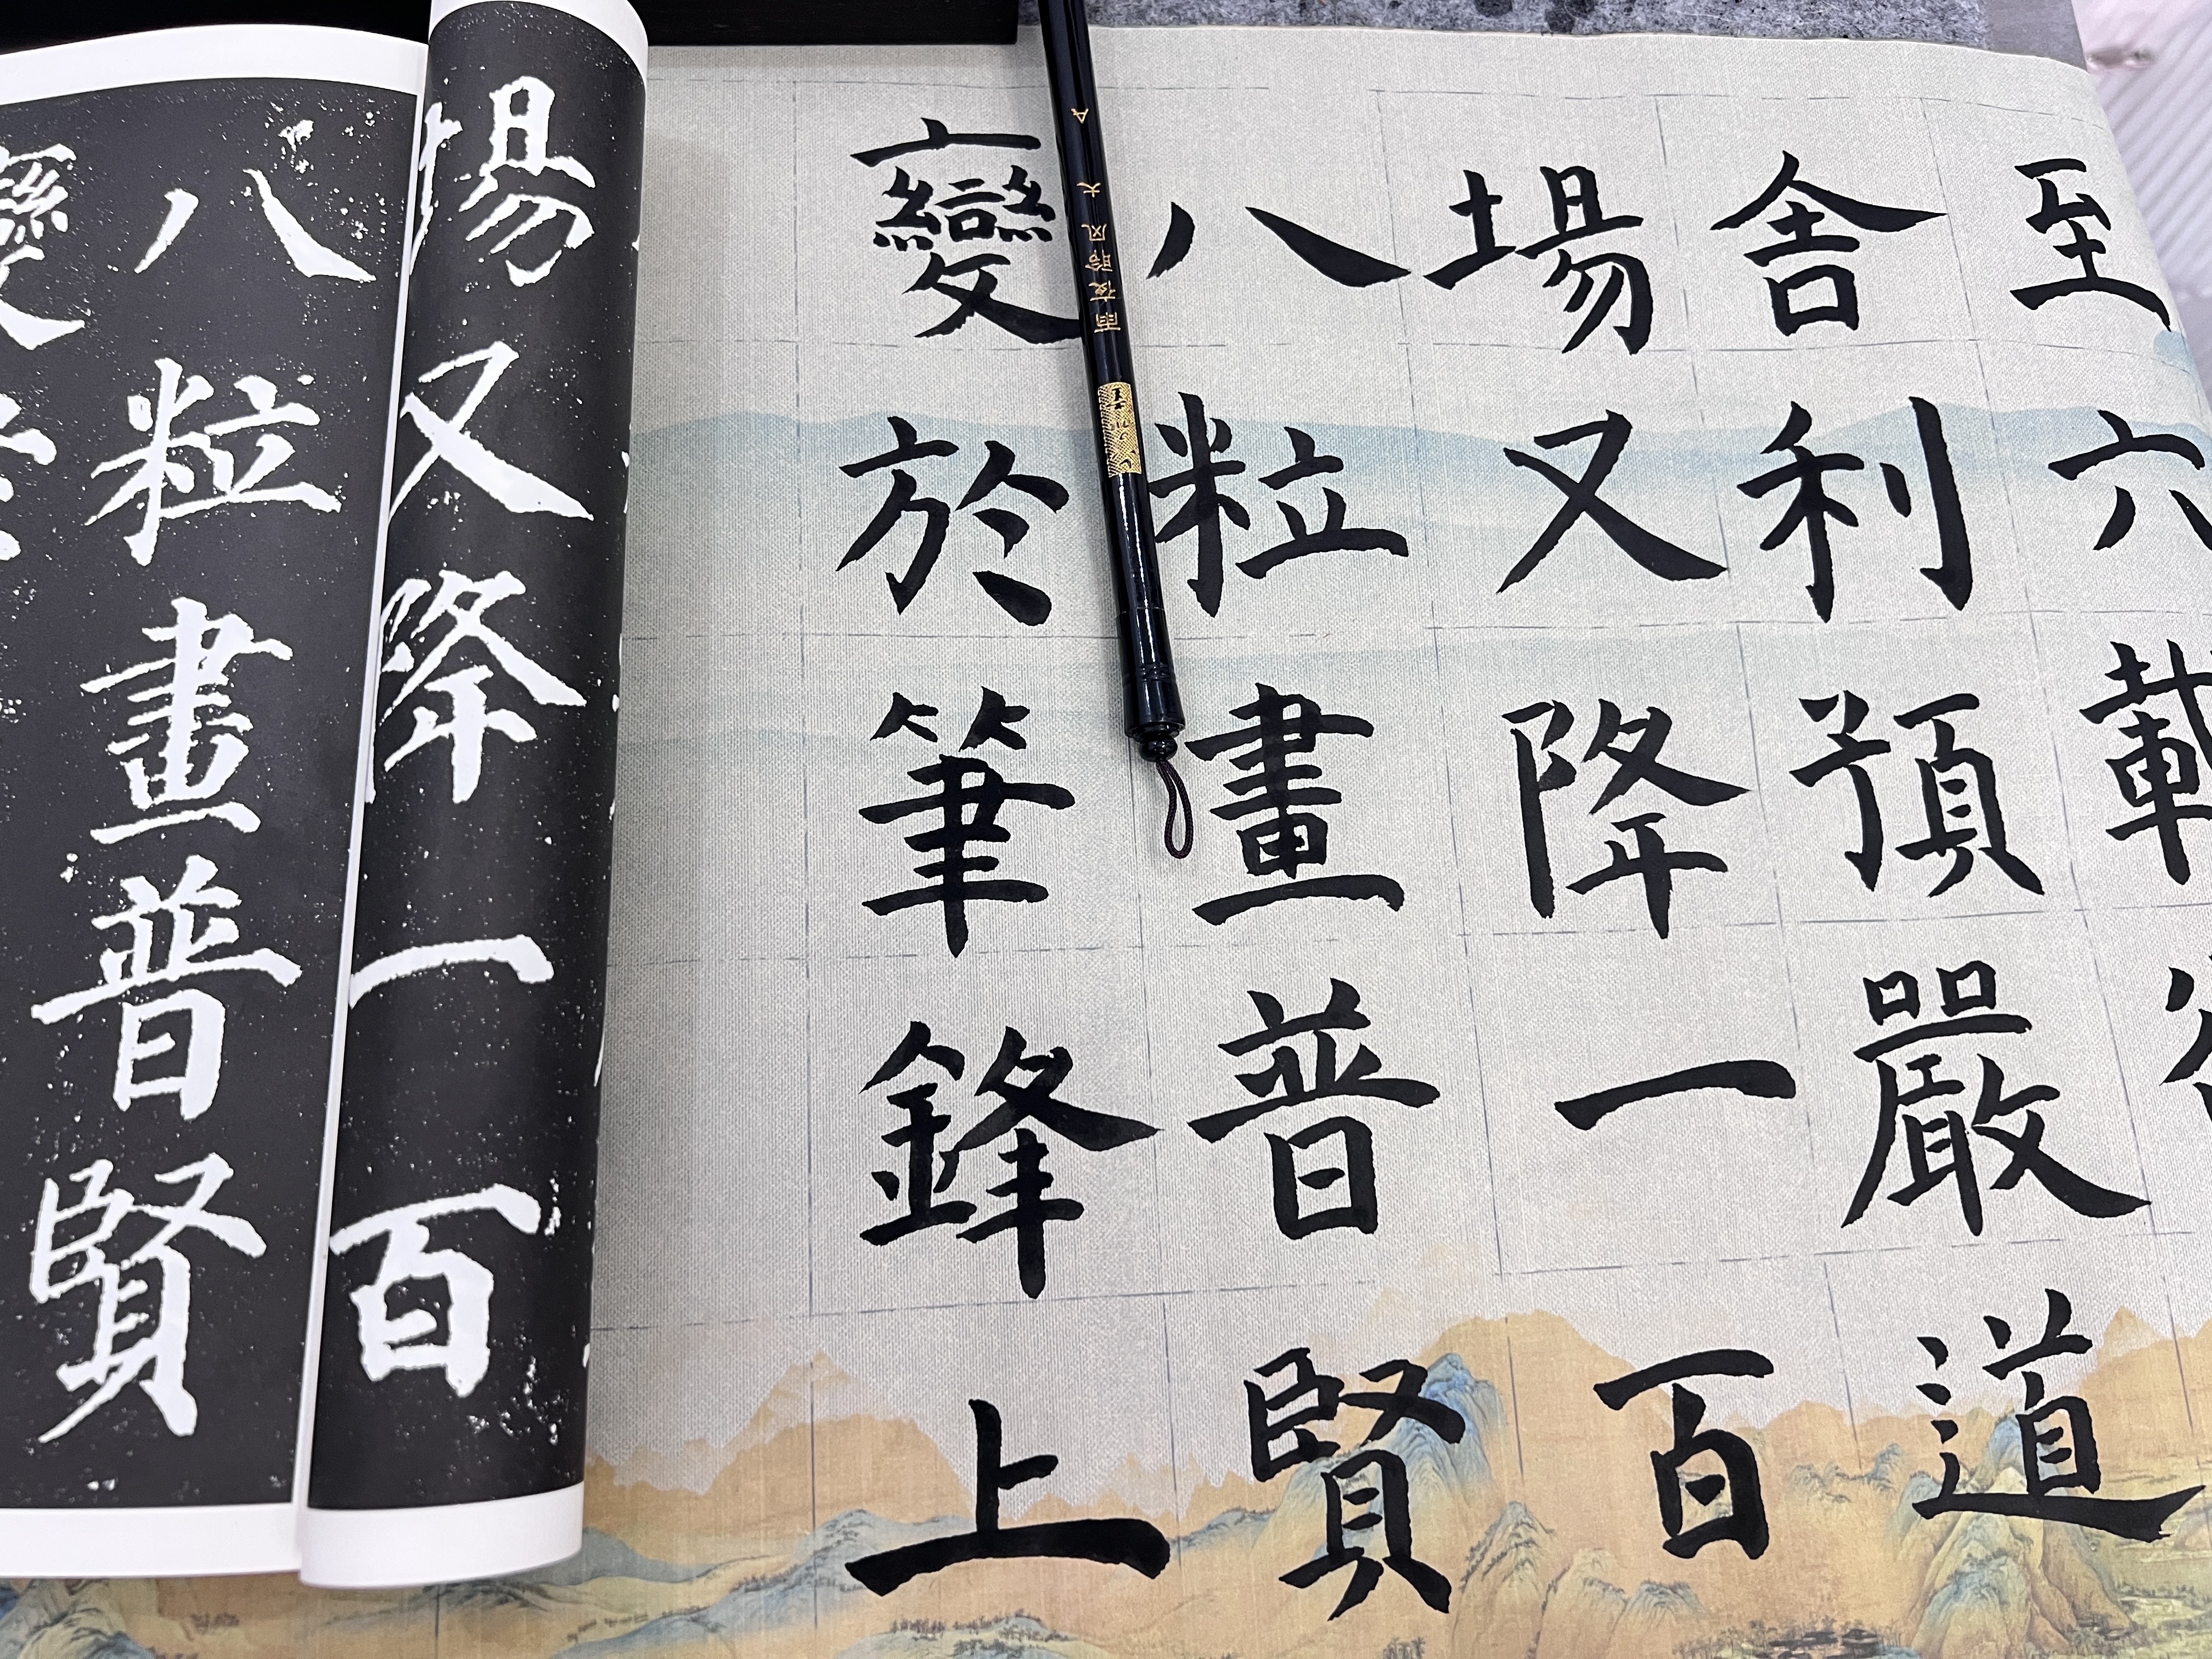 至六載
舍利預嚴道
場又降一百
八粒畫普賢
變於筆鋒上
雨夜聆风 大 A
場又降一百
八粒畫普賢
變